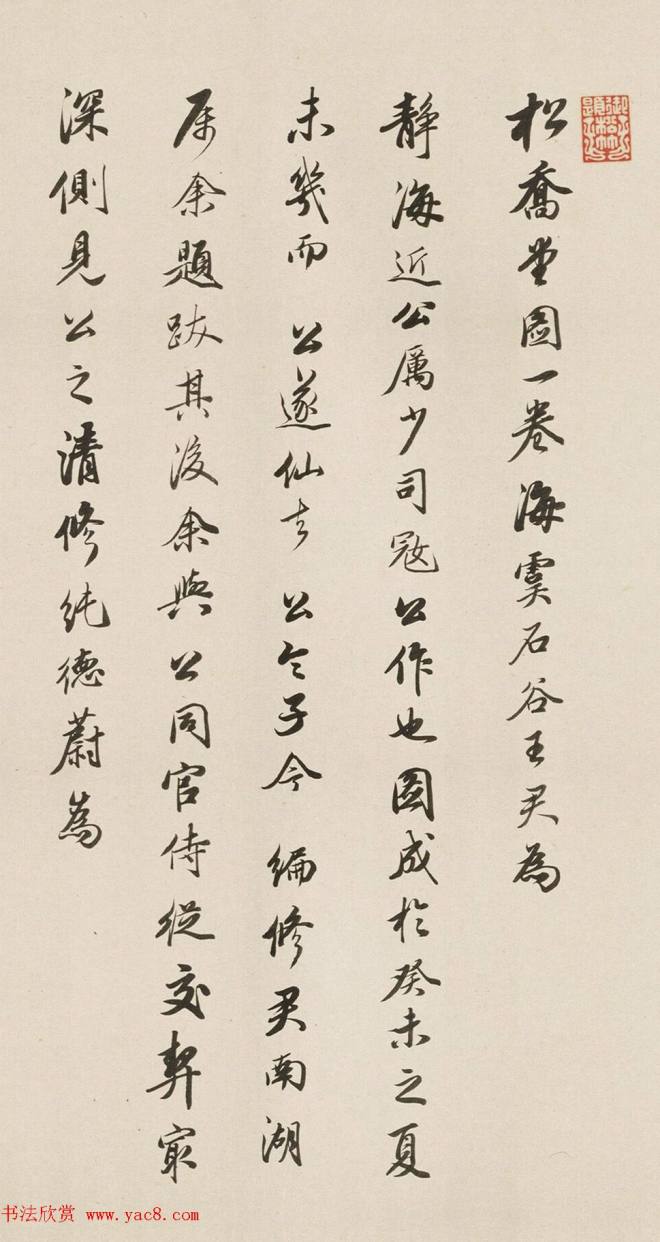 松喬堂圖一卷海虞石谷王君為
靜海近公厲少司寇公作也圖成於癸未之夏
未幾而公遂仙去公令子今編修君南湖
属余題跋其後余與公同官侍從交契寂
深側見公之清修純德蔚為
书法欣赏 www.yac8.com